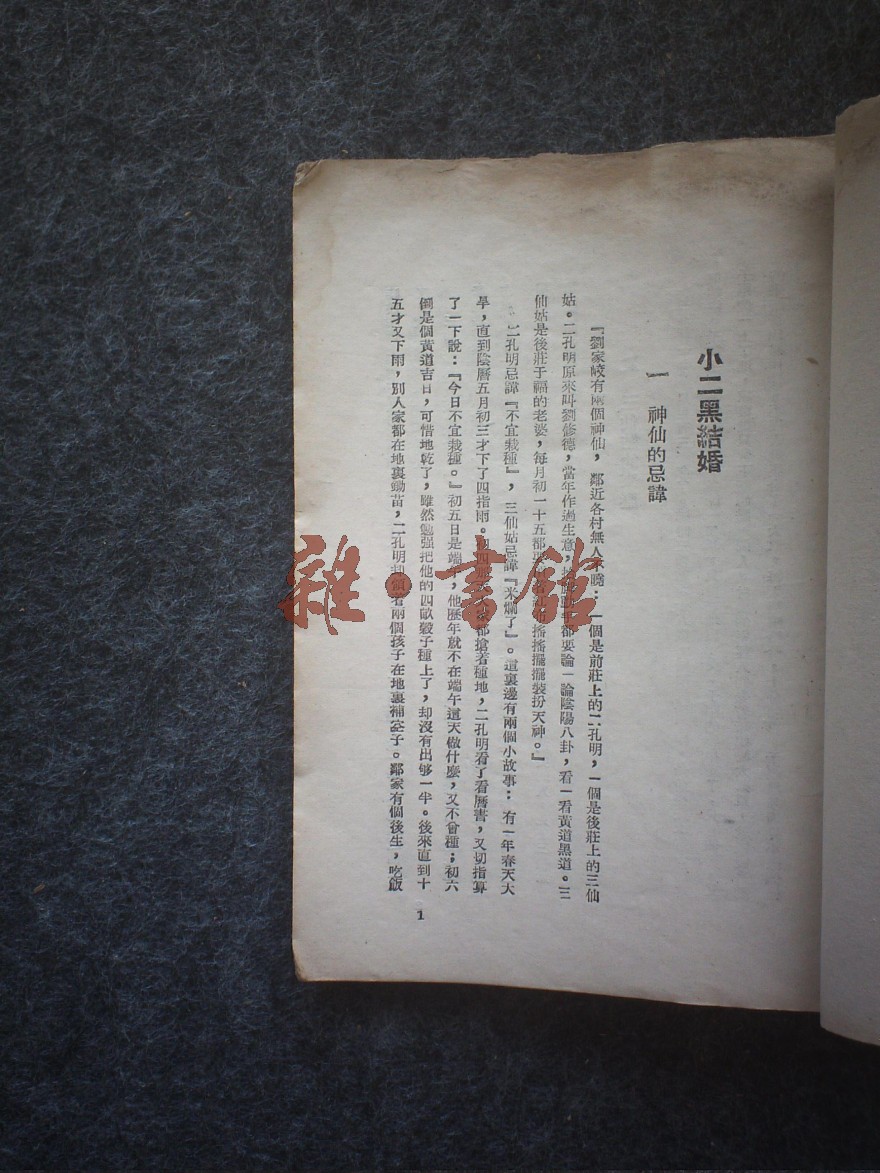 小二黑結婚
一　神仙的忌諱
『劉家峧有兩個神仙，鄰近各村無人不曉：一個是前莊上的二孔明，一個是後莊上的三仙
姑。二孔明原來叫劉修德，當年作過生意，都要論一論陰陽八卦，看一看黃道黑道。三
仙姑是後莊于福的老婆，每月初一十五都要搖搖擺擺裝扮天神。』
二孔明忌諱『不宜栽種』，三仙姑忌諱『米爛了』。這裏邊有兩個小故事：有一年春天大
旱，直到陰曆五月初三才下了四指雨。初四都搶著種地，二孔明看了看曆書，又切指算
了一下說：『今日不宜栽種。』初五日是端午，他歷年就不在端午這天做什麼，又不曾種；初六
倒是個黃道吉日，可惜地乾了，雖然勉强把他的四畝穀子種上了，却沒有出够一半。後來直到十
五才又下雨，別人家都在地裏鋤苗，二孔明却領着兩個孩子在地裏補空子。鄰家有個後生，吃飯
1
雜·書館